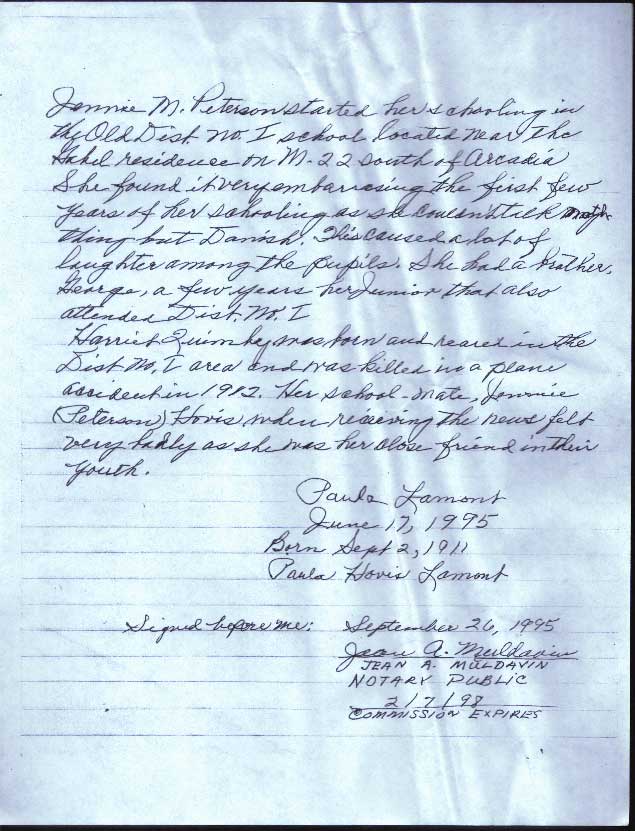 Jennie M. Peterson started her schooling in
the Old Dist. No. I school located near the
residence on M-22 south of Arcadia
She found it very embarrasing the first few
years of her schooling as she couldn't talk
thing but Danish. This caused a lot of
laughter among the pupils. She had a brother,
George, a few years her Junior that also
attended Dist. No. I
Harriet Quimby was born and reared in the
Dist No. I area and was killed in a plane
accident in 1912. Her school-mate, Jennie
(Peterson) Hovis when receiving the news felt
very badly as she was her close friend in their
youth.
Paula Lamont
June 17, 1995
Born Sept 2, 1911
Paula Hovis Lamont
Signed before me: September 26, 1995
Jean A. Muldavin
JEAN A. MULDAVIN
NOTARY PUBLIC
2/7/98
COMMISSION EXPIRES